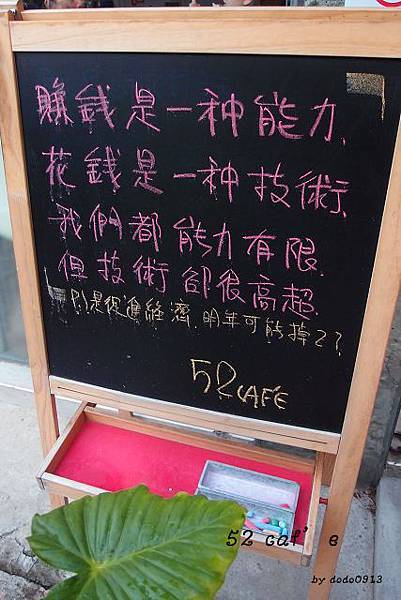 賺錢是一种能力、
花錢是一种技術、
我們都能力有限.
但技術卻很高超.
只是促進經濟.明年可能掉2?
52 CAFÉ
52 caf' e
by dodo0913